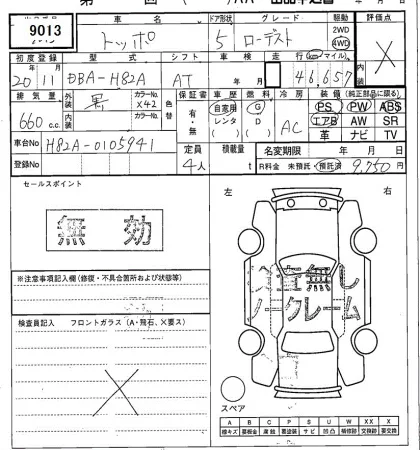 9013
車 名 ドア形状 グレード 駆動 評価点
トッポ 5 ローデスト 2WD 4WD X
初度登録 型式 シフト 車検 走行 (km・マイル) 内装
20年11月 DBA-H82A AT 年 月 46,657
排気量 外装 黒 カラーNo. X42 色替 保証書 車歴 燃料 冷房 装備 (純正部品に限る)
660 c.c. 内装 カラーNo. 有・無 自家用 レンタ ( ) G D ( ) AC PS PW ABS
エアB AW SR
革 ナビ TV
車台No H82A-0105941 定員 積載量 名変期限 年 月 日
登録No 4人 t R料金 未預託 預託済 9,750円
セールスポイント
無効
左 右
※注意事項記入欄(修復・不具合箇所および状態等)
検査員記入 フロントガラス(A・飛石、X要ス)
無し
ノークレーム
スペア
A B C P S U W X XX